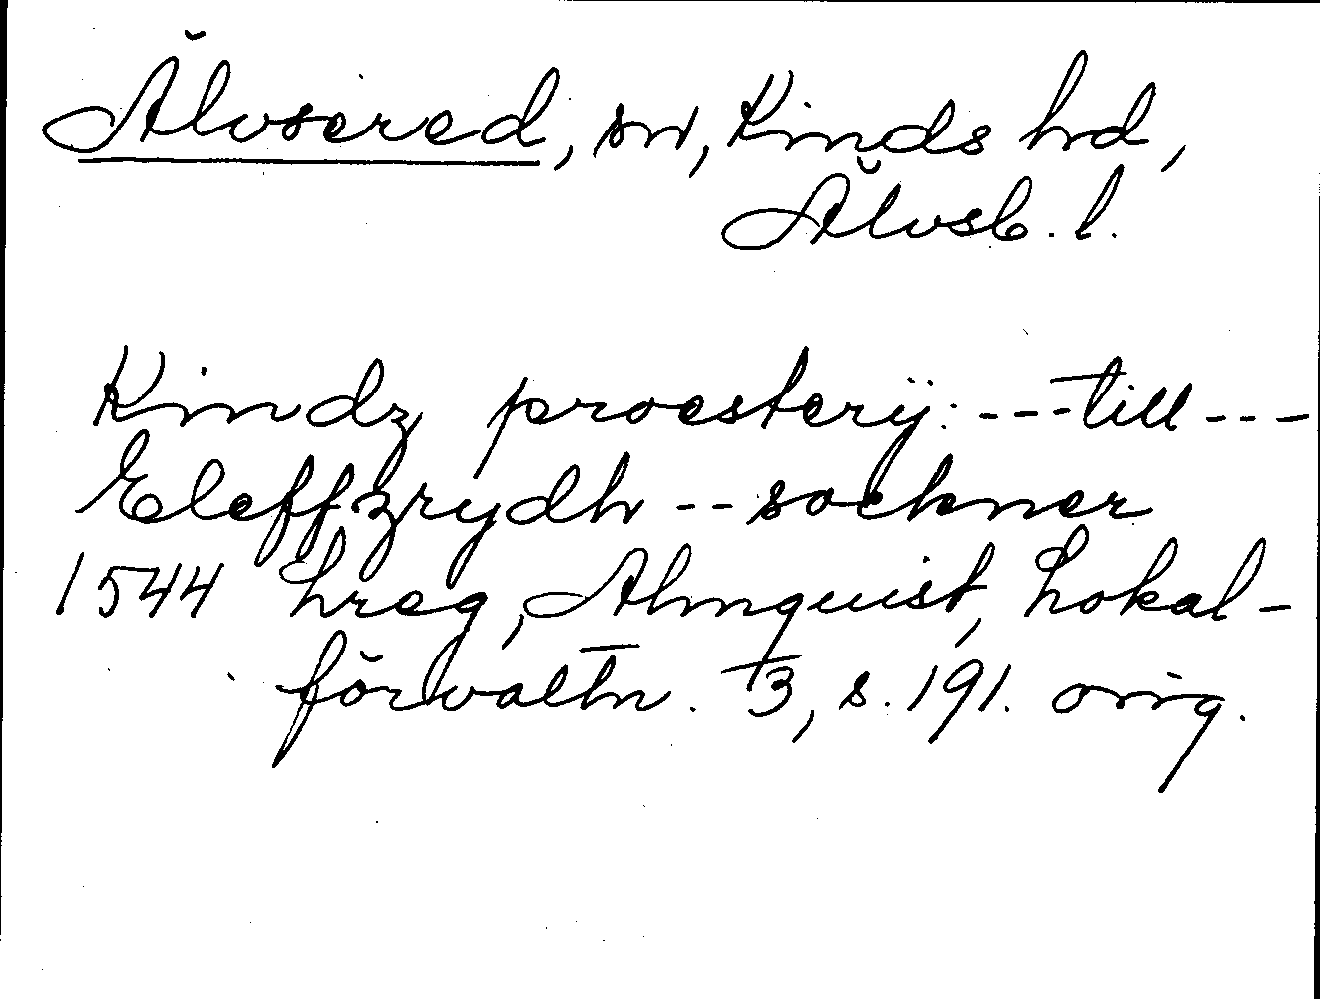 Älvsered, sn, Kinds hd,
Älvsb. l.
Kindz proesterÿ: --- till ---
Eleffzrydh -- sockner
1544 Lreg, Almquist, Lokal-
förvaltn. 3, s. 191. orig.